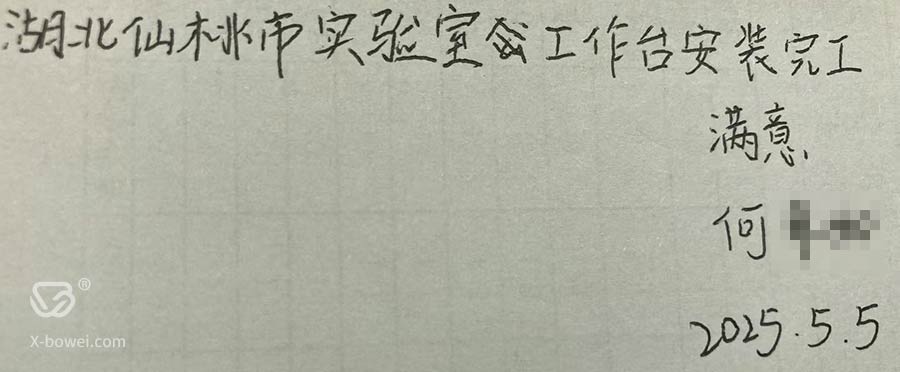 湖北仙桃市实验室工作台安装完工
满意
何
2025.5.5
®
X-bowei.com